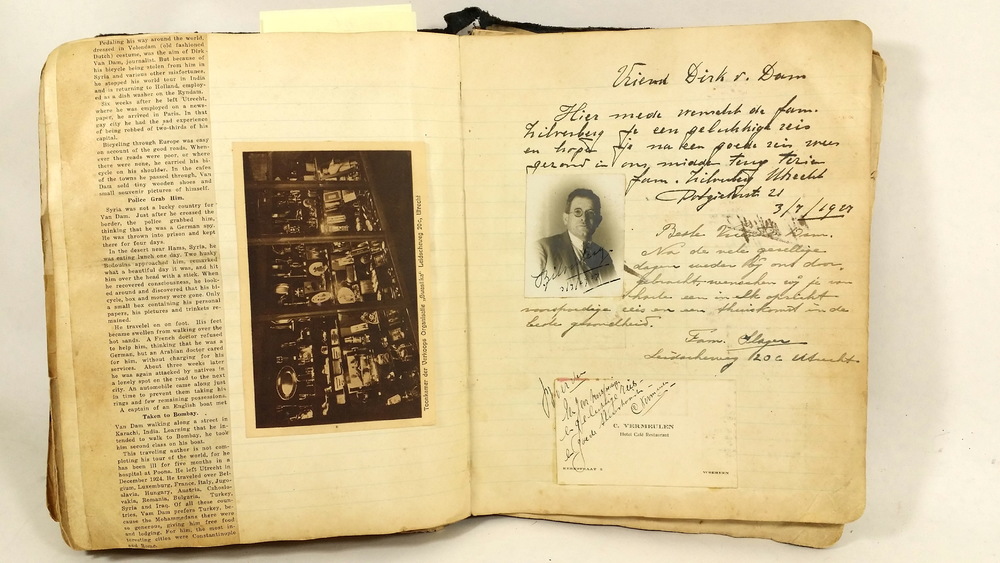 Pedaling his way around the world,
dressed in Volendam (old fashioned
Dutch) costume, was the aim of Dirk
Van Dam, journalist. But because of
his bicycle being stolen from him in
Syria and various other misfortunes,
he stopped his world tour in India
and is returning to Holland, employ-
ed as a dish washer on the Ryndam.
Six weeks after he left Utrecht,
where he was employed on a news-
paper, he arrived in Paris. In that
gay city he had the sad experience
of being robbed of two-thirds of his
capital.
Bicycling through Europe was easy
on account of the good roads. When-
ever the roads were poor, or where
there were none, he carried his bi-
cycle on his shoulder. In the cafes
of the towns he passed through, Van
Dam sold tiny wooden shoes and
small souvenir pictures of himself.
Police Grab Him.
Syria was not a lucky country for
Van Dam. Just after he crossed the
border, the police grabbed him,
thinking that he was a German spy.
He was thrown into prison and kept
there for four days.
In the desert near Hams, Syria, he
was eating lunch one day. Two husky
Bedouins approached him, remarked
what a beautiful day it was, and hit
him over the head with a stick. When
he recovered consciousness, he look-
ed around and discovered that his bi-
cycle, box and money were gone. Only
a small box containing his personal
papers, his pictures and trinkets re-
mained.
He traveled on on foot. His feet
became swollen from walking over the
hot sands. A French doctor refused
to help him, thinking that he was a
German, but an Arabian doctor cared
for him, without charging for his
services. About three weeks later
he was again attacked by natives in
a lonely spot on the road to the next
city. An automobile came along just
in time to prevent them taking his
rings and few remaining possessions.
A captain of an English boat met
Taken to Bombay.
Van Dam walking along a street in
Karachi, India. Learning that he in-
tended to walk to Bombay, he took
him second class on his boat.
This traveling author is not com-
pleting his tour of the world, for he
has been ill for five months in a
hospital at Poona. He left Utrecht in
December 1924. He traveled over Bel-
gium, Luxemburg, France, Italy, Jugo-
slavia, Hungary, Austria, Czhoslo-
vakia, Remania, Bulgaria, Turkey,
Syria and Iraq. Of all these coun-
tries, Van Dam prefers Turkey, be-
cause the Mohammedans there were
so generous, giving him free food
and lodging. For him, the most in-
teresting cities were Constantinople
and Rome.
Toonkamer der Verkoops Organisatie
Leidscheweg 20c, Utrecht
Vriend Dirk v. Dam
Hier mede wenscht de fam.
Zilverberg je een gelukkige reis
en hope je na een goede reis weer
gezond in ons midden terug te zien
fam. Zilverberg Utrecht
21
3/7/1927
Beste Vriend v. Dam.
Na de vele gezellige
dagen weder bij ons door-
gebracht, wenschen wij je van
harte een in elk opzicht
voorspoedige reis en een thuiskomst in de
beste gezondheid.
Fam. Slager
Leidscheweg 20 c Utrecht
C. VERMEULEN
Hotel Café Restaurant